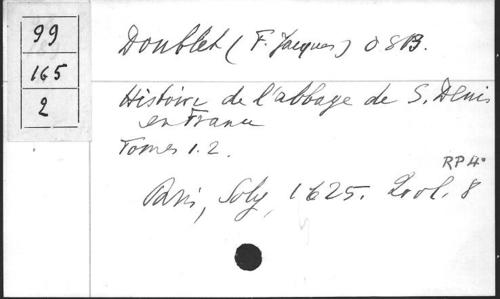 99
165
2
Doublet (F. Jacques) OSB.
Histoire de l'abbaye de S. Denis
en France
Tomes 1.2.
RP4°
Paris, Soly, 1625. 2 vol. 8